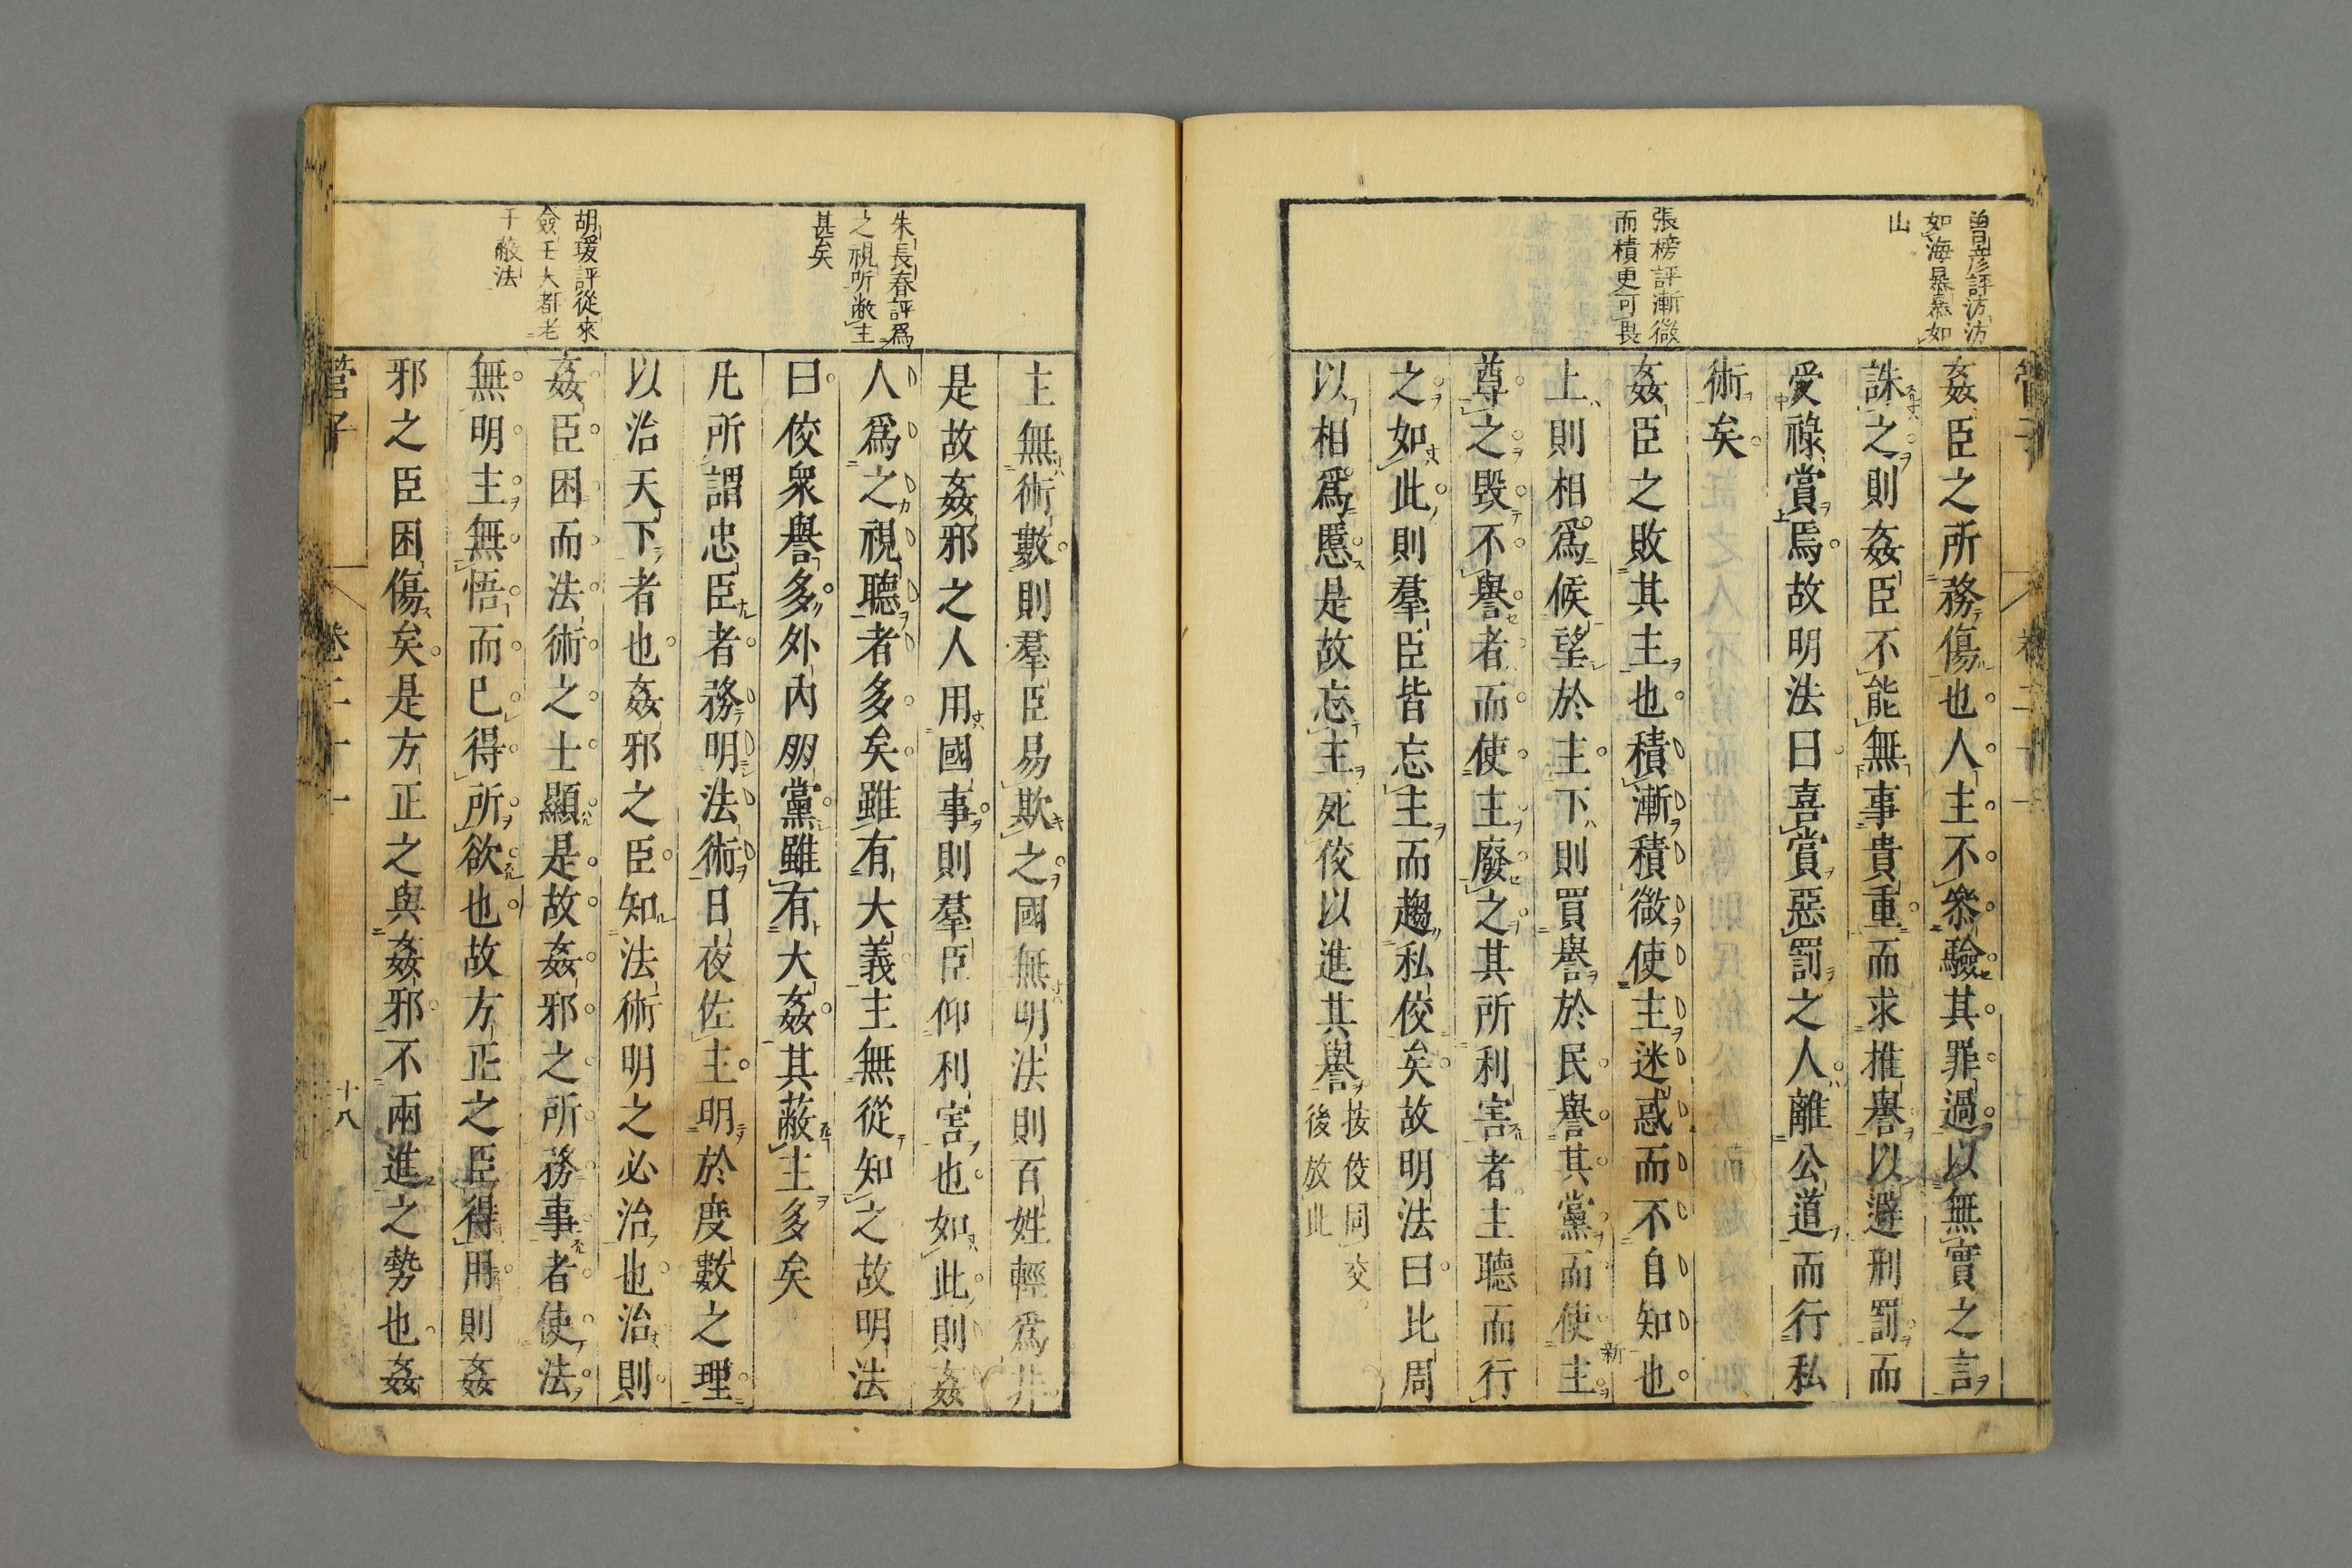 曾彥評汸汸
如海暴暴如
山
張榜評漸微
而積更可畏
姦臣之所務傷也人主不參驗其罪過以無實之言
誅之則姦臣不能無事貴重而求推譽以避刑罰而
受祿賞焉故明法曰喜賞惡罰之人離公道而行私
術矣
姦臣之敗其主也積漸積微使主迷惑而不自知也
上則相爲候望於主下則買譽於民譽其黨而使主
尊之毀不譽者而使主廢之其所利害者主聽而行
之如此則羣臣皆忘主而趨私佼矣故明法曰比周
以相爲慝是故忘主死佼以進其譽
按佼同交
後放此
朱長春評爲
之視所敝主
甚矣
胡瑗評從來
僉壬大都老
于蔽法
主無術數則羣臣易欺之國無明法則百姓輕爲非
是故姦邪之人用國事則羣臣仰利害也如此則姦
人爲之視聽者多矣雖有大義主無從知之故明法
曰佼衆譽多外內朋黨雖有大姦其蔽主多矣
凡所謂忠臣者務明法術日夜佐主明於度數之理
以治天下者也姦邪之臣知法術明之必治也治則
姦臣困而法術之士顯是故姦邪之所務事者使法
無明主無悟而已得所欲也故方正之臣得用則姦
邪之臣困傷矣是方正之與姦邪不兩進之勢也姦
管子 卷二十一 十八